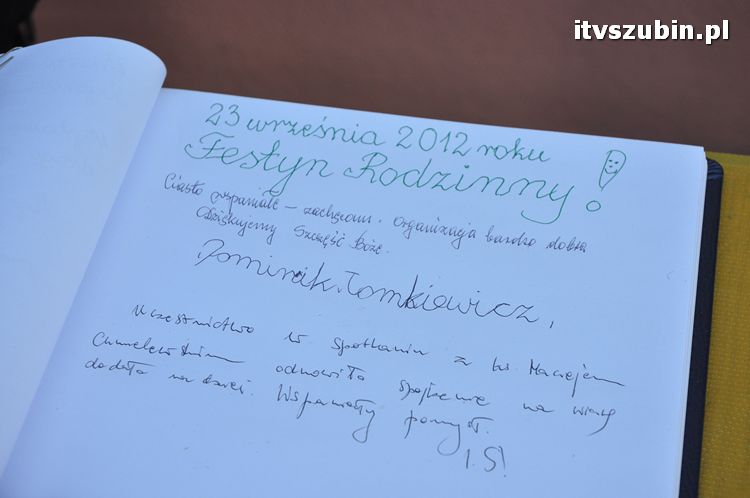 itvszubin.pl
23 września 2012 roku
Festyn Rodzinny!
Ciasto wspaniałe – zachęcam. Organizacja bardzo dobra
Dziękujemy Szczęść Boże.
Dominik Tomkiewicz,
Uczestnictwo w spotkaniu z ks. Maciejem
odnowiło spojrzenie na wiarę
dodało nadziei. Wspaniały pomysł.
I.S!